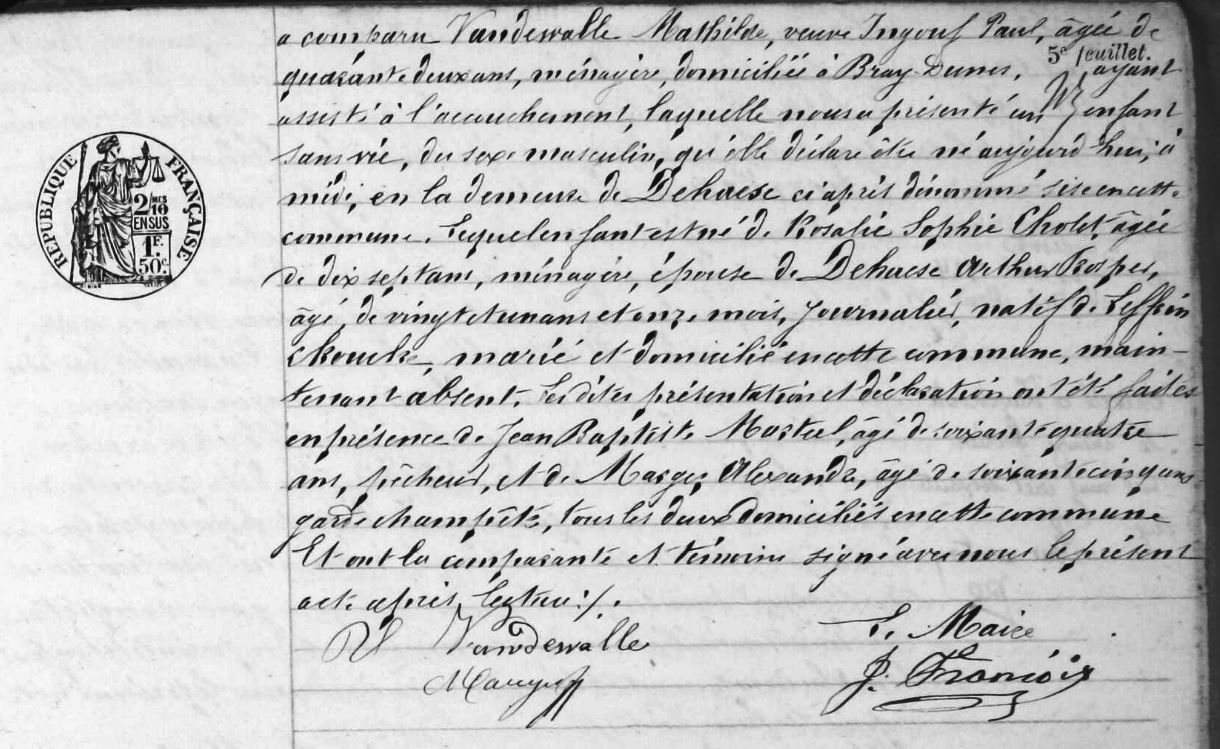 a comparu Vandewalle Mathilde, veuve Ingouf Paul, âgée de
5e feuillet.
quarante deux ans, ménagère, domiciliée à Bray-Dunes, ayant
assisté à l'accouchement, laquelle nous a présenté un enfant
sans vie, du sexe masculin, qu'elle déclare être né aujourd'hui, à
midi, en la demeure de Dehaese ci après dénommé sise en cette
commune. Lequel enfant est né de Rosalie Sophie Cholet, âgée
de dix sept ans, ménagère, épouse de Dehaese Arthur Prosper,
âgé de vingt et un ans et onze mois, journalier, natif de Leffrin
ckoucke, marié et domicilié en cette commune, main-
tenant absent. Les dites présentation et déclaration ont été faites
en présence de Jean Baptiste âgé de soixante quatre
ans, pêcheur, et de Alexandre, âgé de soixante cinq ans
garde champêtre, tous les deux domiciliés en cette commune
Et ont la comparante et témoins signé avec nous le présent
acte après lecture ./.
RÉPUBLIQUE FRANÇAISE
2/10 MES
EN SUS
1F.
50c.
Vandewalle
Le Maire
J. François